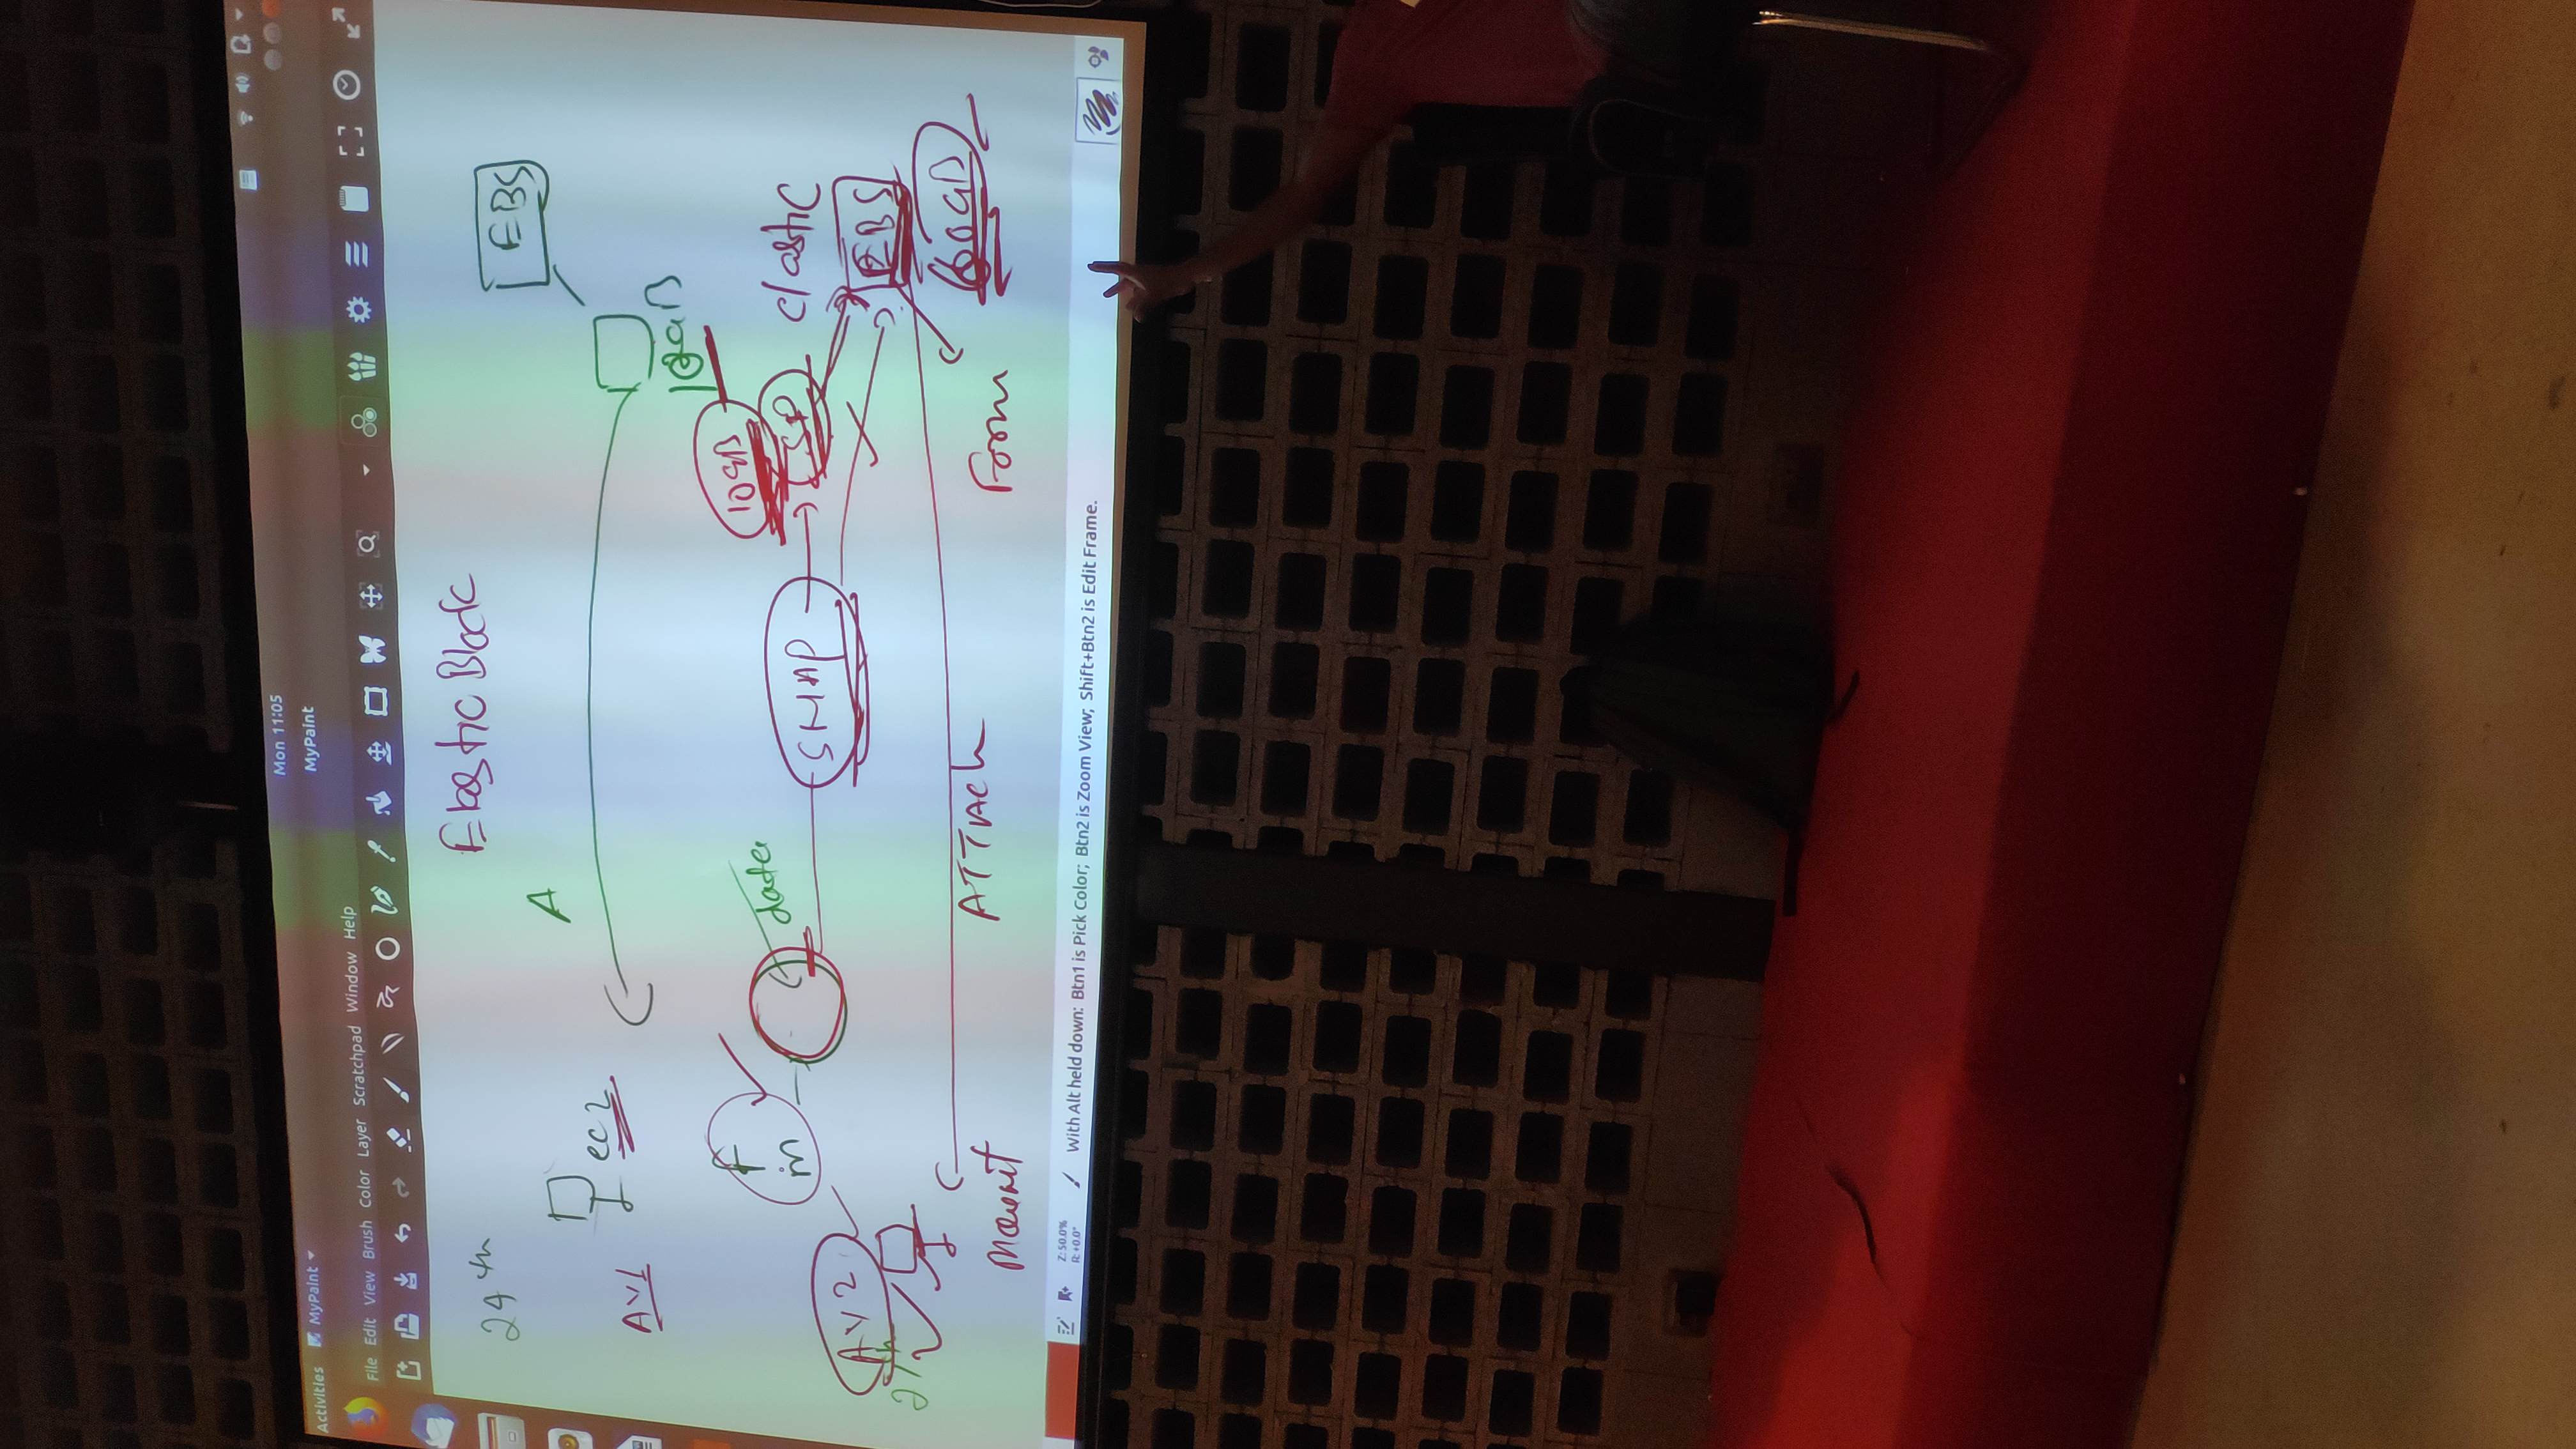 Mon 11:05
Activities MyPaint
MyPaint
File Edit View Brush Color Layer Scratchpad Window Help
Elastic Block
24th
EBS
A
ec2
AV1
10GB
F
m
10GB
data
SNAP
SP
elastic
AV2
EBS
60GB
ATTAch
Mount
Form
Z: 50.0%
R: +0.0°
With Alt held down: Btn1 is Pick Color; Btn2 is Zoom View; Shift+Btn2 is Edit Frame.